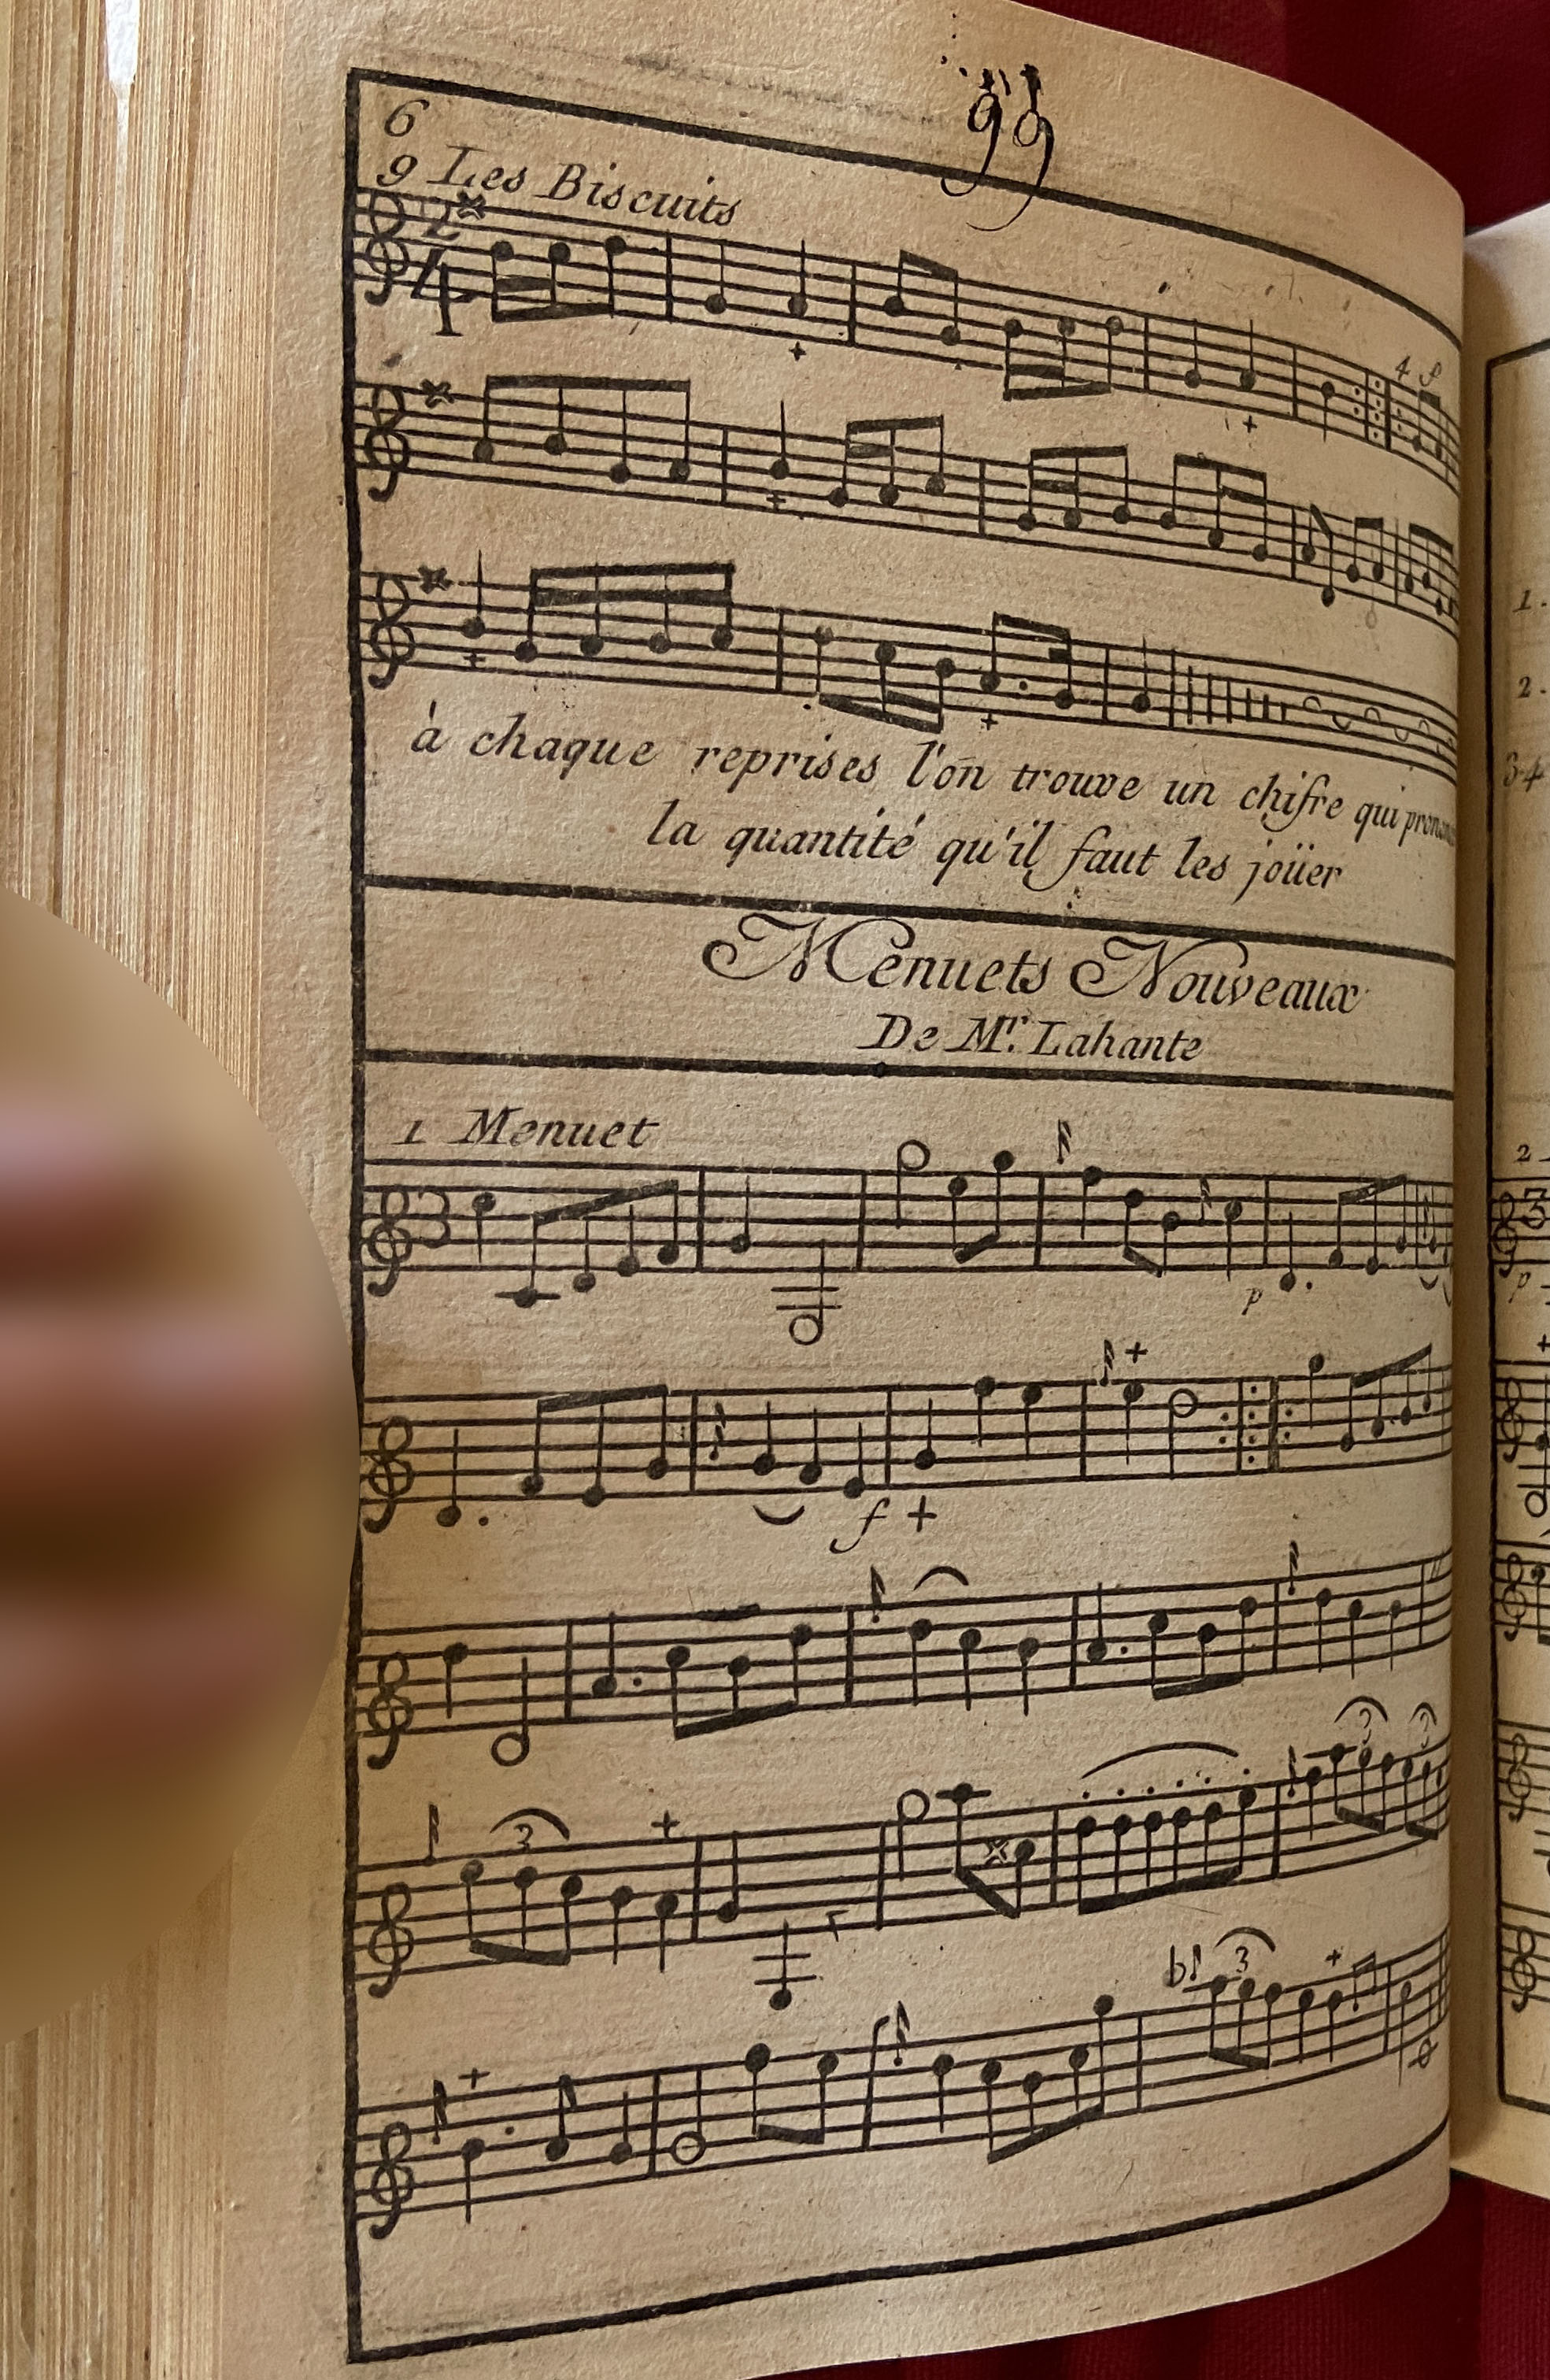 99
6
9 Les Biscuits
à chaque reprises l'on trouve un chifre qui
la quantité qu'il faut les joüer
Menuets Nouveaux
De Mr. Lahante
1 Menuet